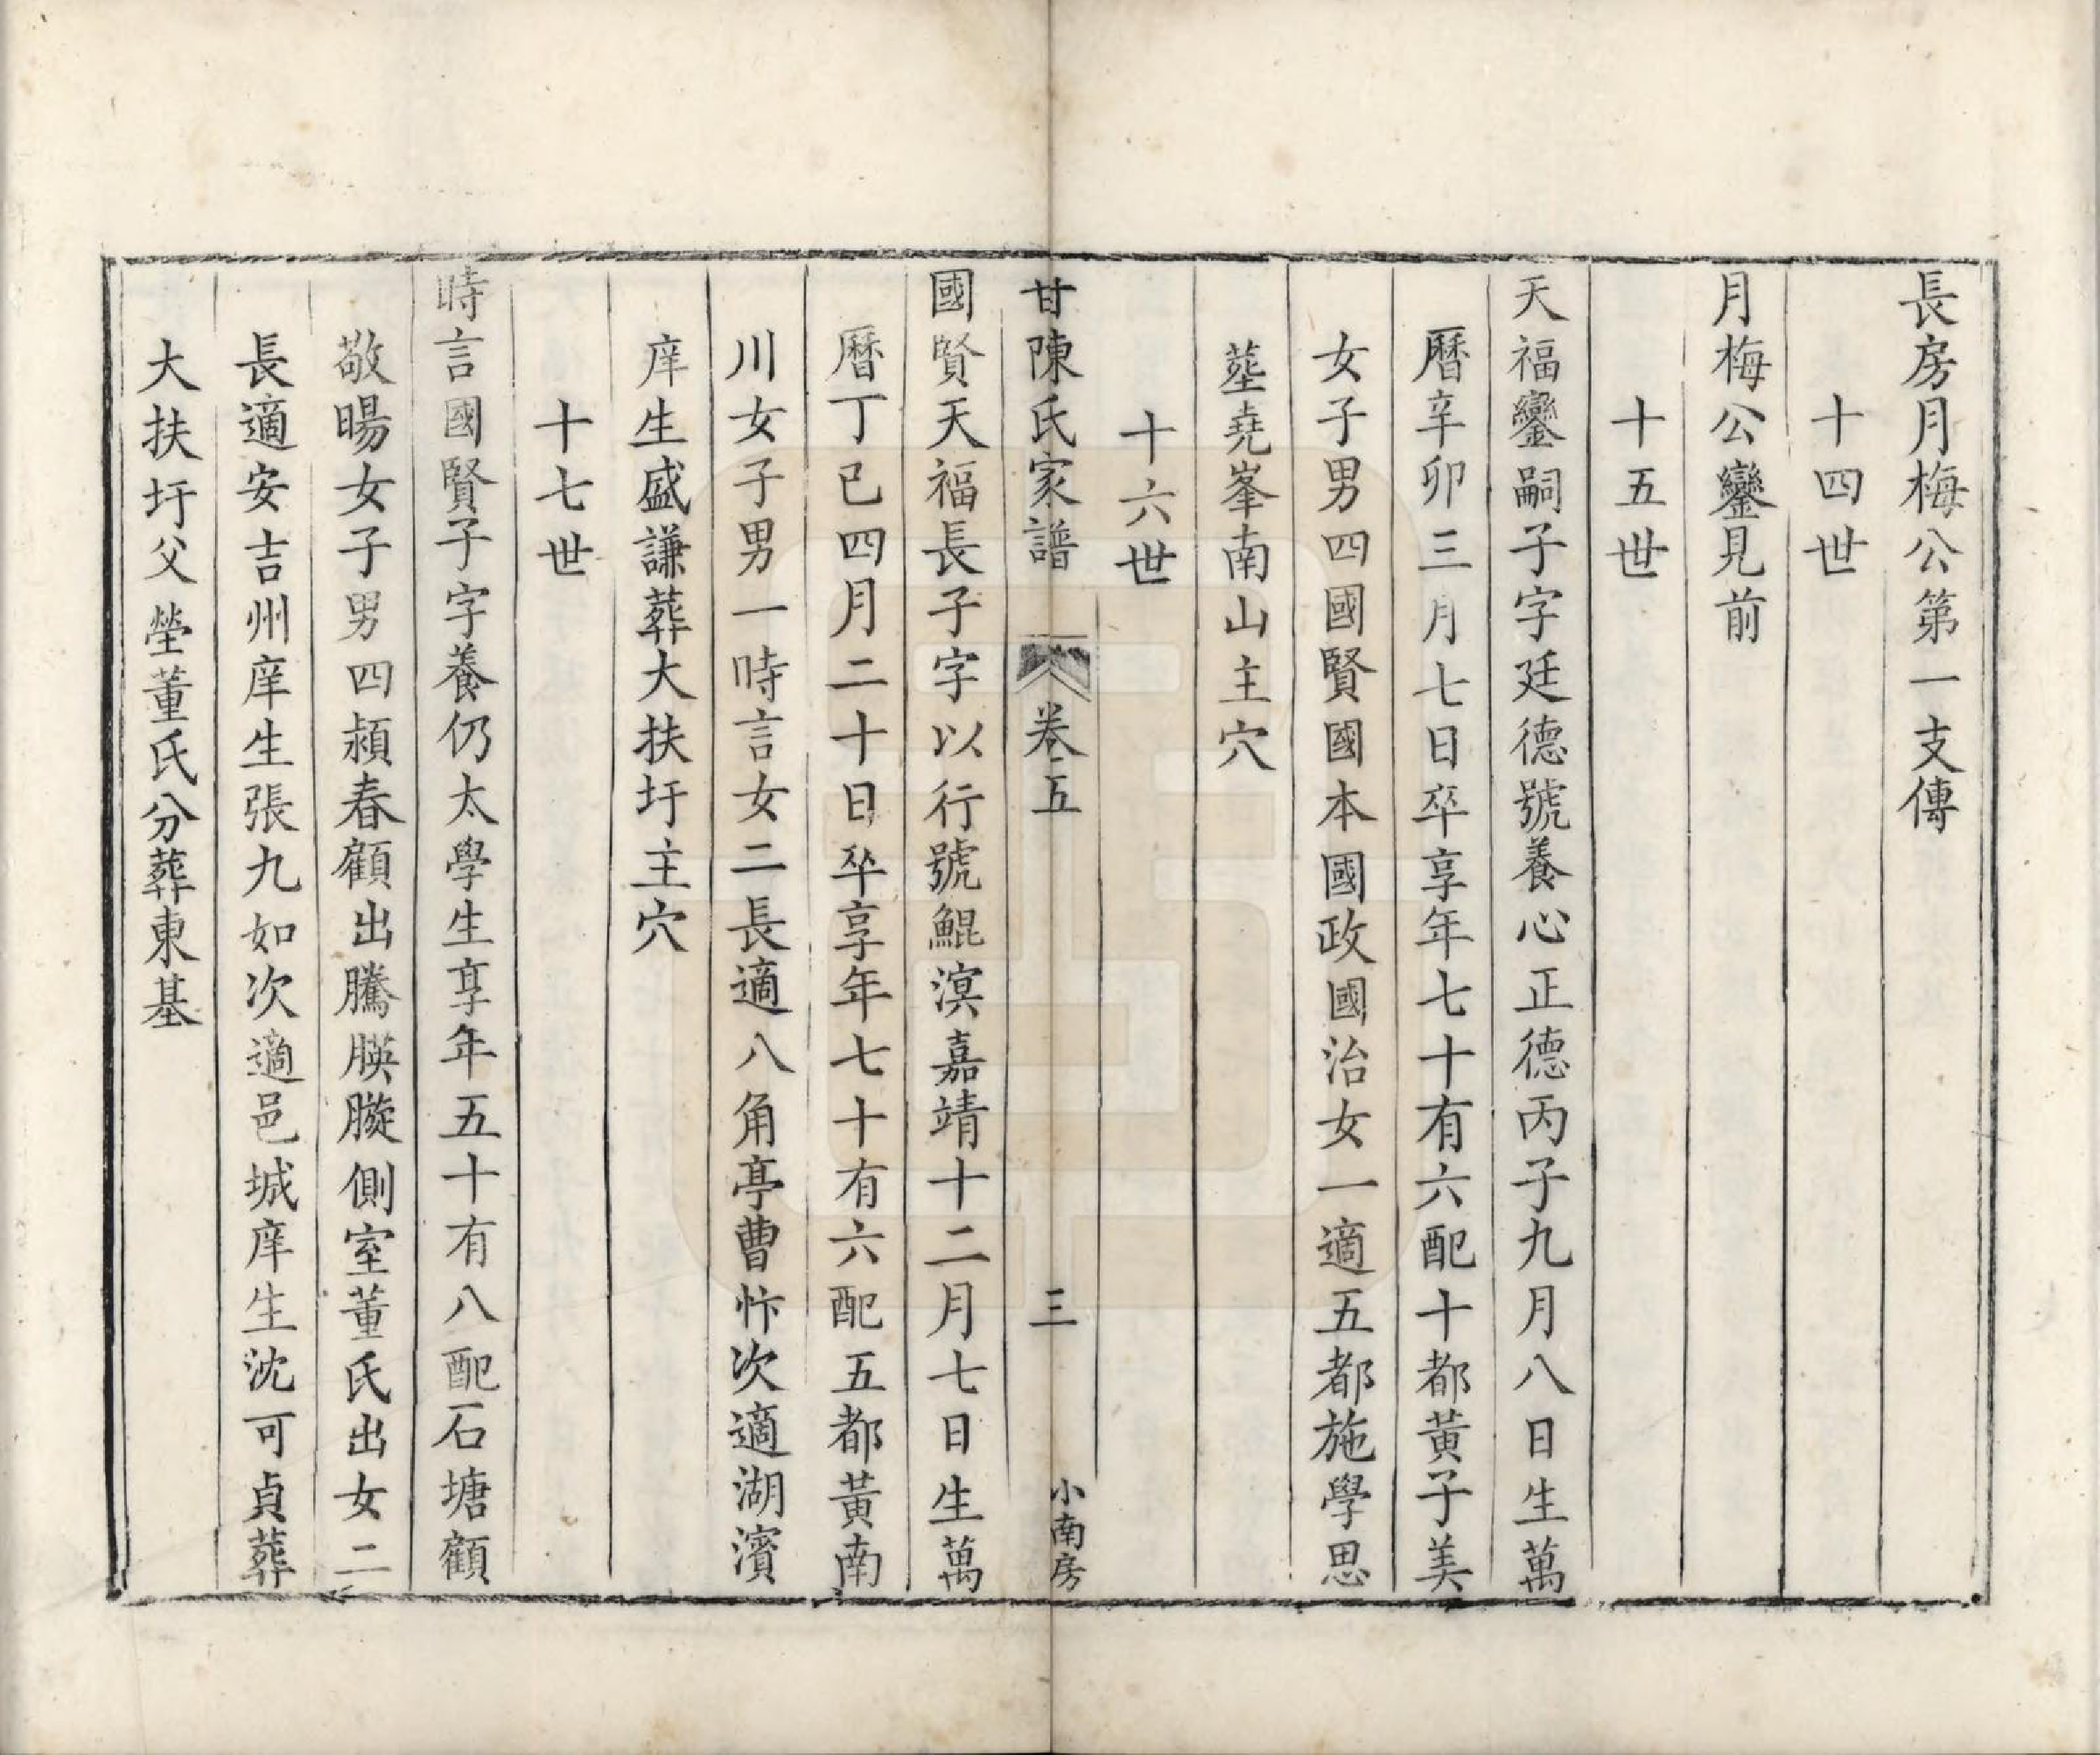 長房月梅公第一支傳
十四世
月梅公鑾見前
十五世
天福鑾嗣子字廷德號養心正德丙子九月八日生萬
曆辛卯三月七日卒享年七十有六配十都黃子美
女子男四國賢國本國政國治女一適五都施學思
塟堯峯南山主穴
十六世
甘陳氏家譜 卷五 三 小南房
國賢天福長子字以行號鯤溟嘉靖十二月七日生萬
曆丁巳四月二十日卒享年七十有六配五都黃南
川女子男一時言女二長適八角亭曹忭次適湖濱
庠生盛謙葬大扶圩主穴
十七世
時言國賢子字養仍太學生享年五十有八配石塘顧
敬暘女子男四熲春顧出騰朠䁢側室董氏出女二
長適安吉州庠生張九如次適邑城庠生沈可貞葬
大扶圩父塋董氏分葬東基